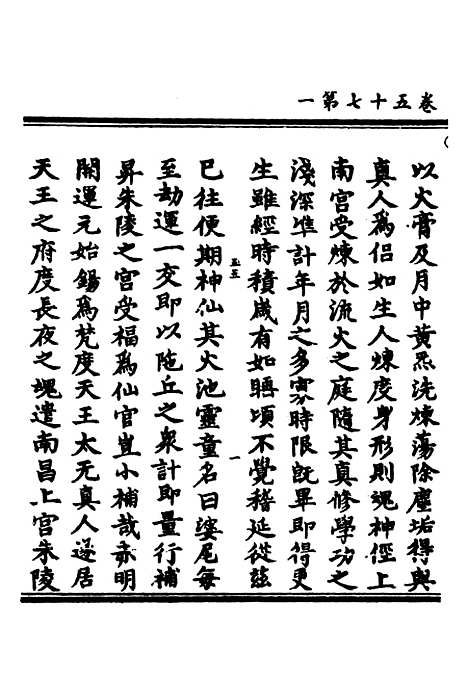 卷五十七第一
以火膏及月中黄炁洗煉蕩除塵垢得與
真人為侣如生人煉度身形則魂神徑上
南宫受煉於流火之庭隨其真修學功之
淺深準計年月之多寡時限既畢即得更
生雖經時積歲有如晤頃不覺稽延從兹
五五 一
已往便期神仙其火池靈童名曰婆尾每
至劫運一交即以陁丘之衆計即量行補
昇朱陵之宫受福為仙官豈小補哉赤明
開運元始錫為梵度天王太无真人遂居
天王之府度長夜之魂遣南昌上宫朱陵